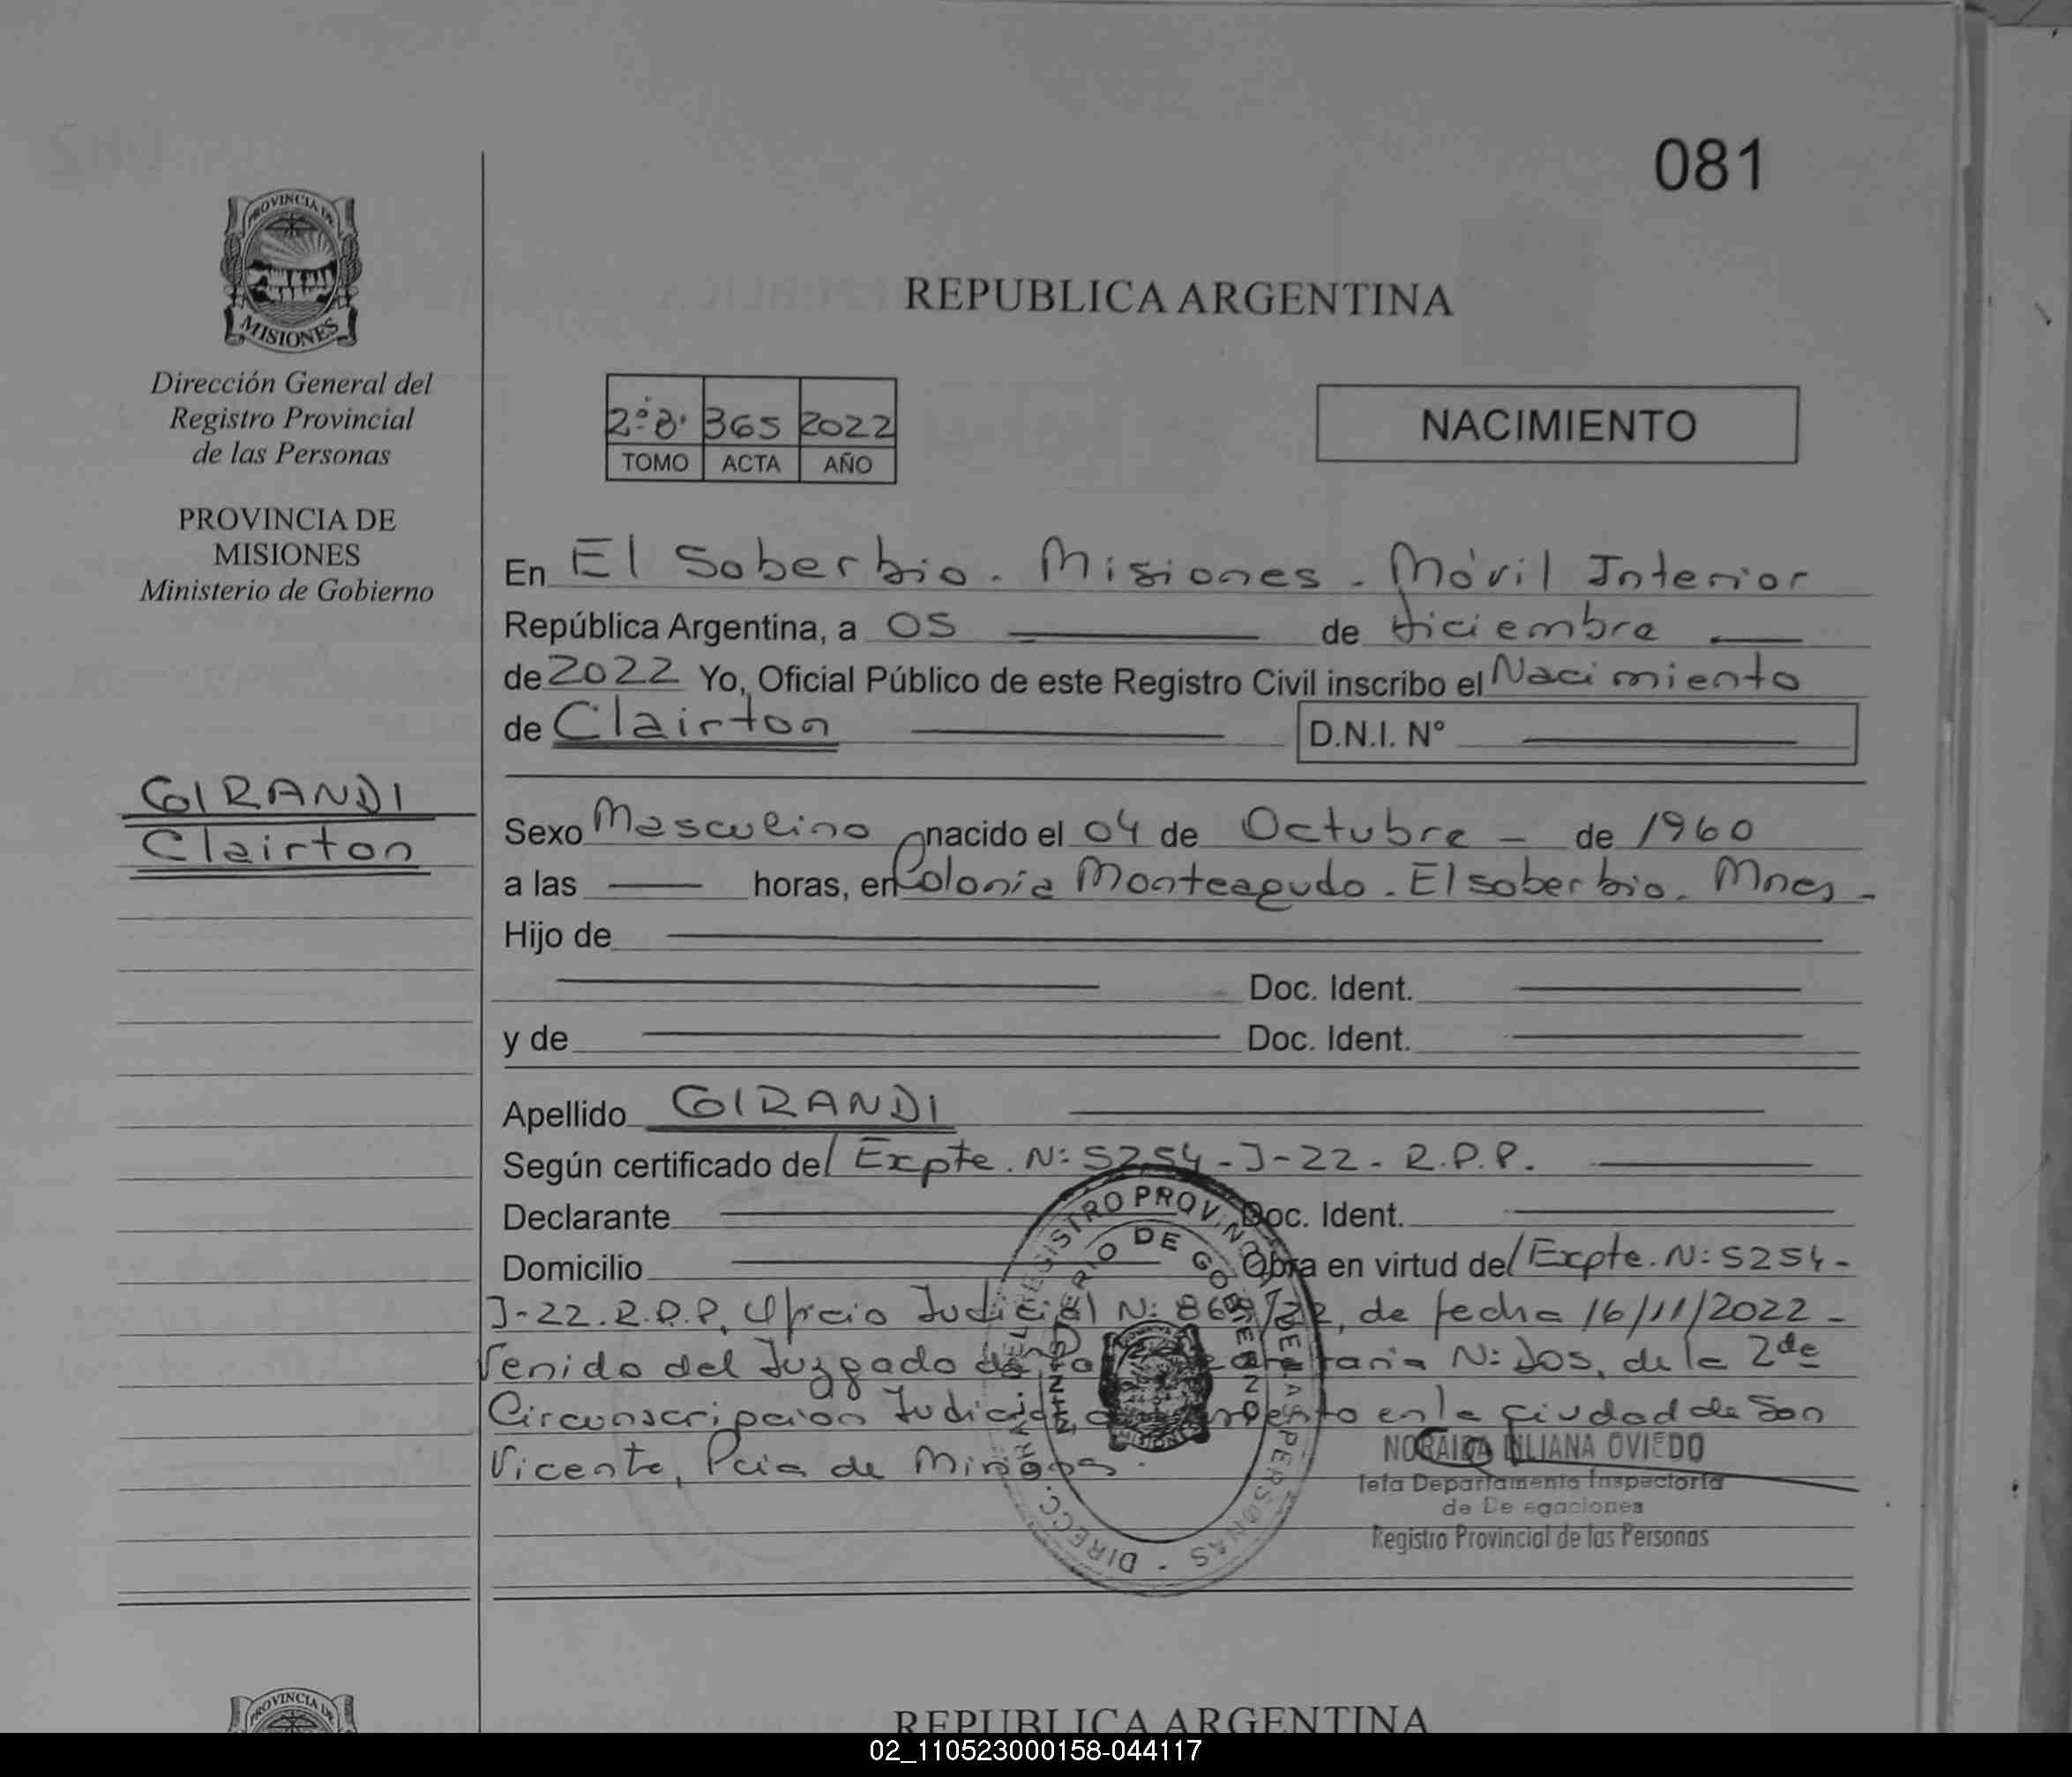 081
PROVINCIA DE
MISIONES
Dirección General del
Registro Provincial
de las Personas
PROVINCIA DE
MISIONES
Ministerio de Gobierno
GIRANDI
Clairton
REPUBLICA ARGENTINA
2º B. 365 2022
TOMO ACTA AÑO
NACIMIENTO
En El Soberbio - Misiones - Móvil Interior
República Argentina, a 05 de diciembre
de 2022 Yo, Oficial Público de este Registro Civil inscribo el Nacimiento
de Clairton D.N.I. Nº
Sexo Masculino nacido el 04 de Octubre - de 1960
a las horas, en Colonia Monteagudo - El soberbio - Mnes -
Hijo de
Doc. Ident.
y de Doc. Ident.
Apellido GIRANDI
Según certificado del Expte. N: 5254 - J-22 - R.P.P.
Declarante Doc. Ident.
Domicilio Obra en virtud del Expte. N: 5254 -
J-22. R.P.P. Oficio Judicial N: /22, de fecha 16/11/2022 -
Venido del Juzgado de N: Dos, de la 2da
Circunscripcion Judicial en la ciudad de San
Vicente, Pcia de Misiones.
DIRECC. GRAL. DEL REGISTRO PROVINCIAL DE LAS PERSONAS
MINISTERIO DE GOBIERNO
MISIONES
NORAIDA LILIANA OVIEDO
Jefa Departamento Inspectoría
de Delegaciones
Registro Provincial de las Personas
PROVINCIA DE
REPUBLICA ARGENTINA
02_110523000158-044117